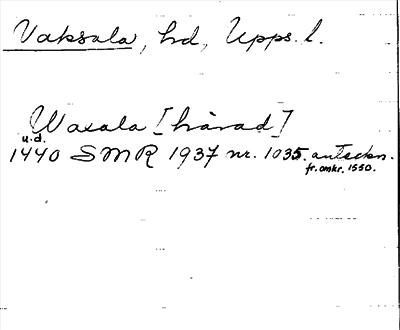 Vaksala, hd, Upps. l.
Waxala [härad]
u.d.
1440 SMR 1937 nr. 1035. anteckn.
fr. omkr. 1550.